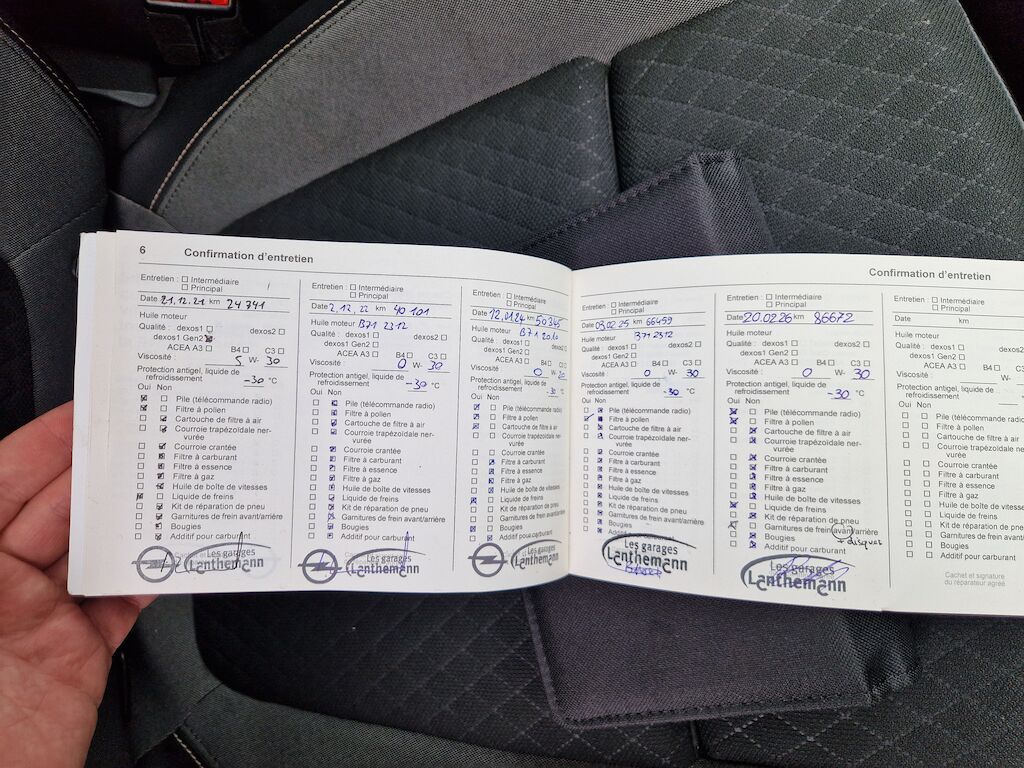 6 Confirmation d'entretien
Entretien : ☐ Intermédiaire
☐ Principal
Date 21.12.21 km 24741
Huile moteur
Qualité : dexos1 ☐ dexos2 ☐
dexos1 Gen2 ☒
ACEA A3 ☐ B4 ☐ C3 ☐
Viscosité : 5 W- 30
Protection antigel, liquide de
refroidissement -30 °C
Oui Non
Pile (télécommande radio)
Filtre à pollen
Cartouche de filtre à air
Courroie trapézoïdale ner-
vurée
Courroie crantée
Filtre à carburant
Filtre à essence
Filtre à gaz
Huile de boîte de vitesses
Liquide de freins
Kit de réparation de pneu
Garnitures de frein avant/arrière
Bougies
Additif pour carburant
Les garages
Lanthemann
Entretien : ☐ Intermédiaire
☐ Principal
Date 2.12.22 km 40101
Huile moteur B71 2312
Qualité : dexos1 ☐ dexos2 ☐
dexos1 Gen2 ☐
ACEA A3 ☐ B4 ☐ C3 ☐
Viscosité : 0 W- 30
Protection antigel, liquide de
refroidissement -30 °C
Oui Non
Pile (télécommande radio)
Filtre à pollen
Cartouche de filtre à air
Courroie trapézoïdale ner-
vurée
Courroie crantée
Filtre à carburant
Filtre à essence
Filtre à gaz
Huile de boîte de vitesses
Liquide de freins
Kit de réparation de pneu
Garnitures de frein avant/arrière
Bougies
Additif pour carburant
Les garages
Lanthemann
Entretien : ☐ Intermédiaire
☐ Principal
Date 12.01.24 km 50345
Huile moteur B71 2010
Qualité : dexos1 ☐ dexos2 ☐
dexos1 Gen2 ☐
ACEA A3 ☐ B4 ☐ C3 ☐
Viscosité : 0 W- 30
Protection antigel, liquide de
refroidissement -30 °C
Oui Non
Pile (télécommande radio)
Filtre à pollen
Cartouche de filtre à air
Courroie trapézoïdale ner-
vurée
Courroie crantée
Filtre à carburant
Filtre à essence
Filtre à gaz
Huile de boîte de vitesses
Liquide de freins
Kit de réparation de pneu
Garnitures de frein avant/arrière
Bougies
Additif pour carburant
Les garages
Lanthemann
Confirmation d'entretien
Entretien : ☐ Intermédiaire
☐ Principal
Date 03.02.25 km 66459
Huile moteur B71 2312
Qualité : dexos1 ☐ dexos2 ☐
dexos1 Gen2 ☐
ACEA A3 ☐ B4 ☐ C3 ☐
Viscosité : 0 W- 30
Protection antigel, liquide de
refroidissement -30 °C
Oui Non
Pile (télécommande radio)
Filtre à pollen
Cartouche de filtre à air
Courroie trapézoïdale ner-
vurée
Courroie crantée
Filtre à carburant
Filtre à essence
Filtre à gaz
Huile de boîte de vitesses
Liquide de freins
Kit de réparation de pneu
Garnitures de frein avant/arrière
Bougies
Additif pour carburant
Les garages
Lanthemann
Entretien : ☐ Intermédiaire
☐ Principal
Date 20.02.26 km 86672
Huile moteur
Qualité : dexos1 ☐ dexos2 ☐
dexos1 Gen2 ☐
ACEA A3 ☐ B4 ☐ C3 ☐
Viscosité : 0 W- 30
Protection antigel, liquide de
refroidissement -30 °C
Oui Non
Pile (télécommande radio)
Filtre à pollen
Cartouche de filtre à air
Courroie trapézoïdale ner-
vurée
Courroie crantée
Filtre à carburant
Filtre à essence
Filtre à gaz
Huile de boîte de vitesses
Liquide de freins
Kit de réparation de pneu
Garnitures de frein avant/arrière
Bougies + disques
Additif pour carburant
Les garages
Lanthemann
Entretien : ☐ Intermédiaire
☐ Principal
Date km
Huile moteur
Qualité : dexos1 ☐ dexos2
dexos1 Gen2 ☐
ACEA A3 ☐ B4 ☐ C3
Viscosité : W-
Protection antigel, liquide de
refroidissement
Oui Non
Pile (télécommande radio)
Filtre à pollen
Cartouche de filtre à air
Courroie trapézoïdale ner-
vurée
Courroie crantée
Filtre à carburant
Filtre à essence
Filtre à gaz
Huile de boîte de vitesses
Liquide de freins
Kit de réparation de pneu
Garnitures de frein avant/arrière
Bougies
Additif pour carburant
Cachet et signature
du réparateur agréé